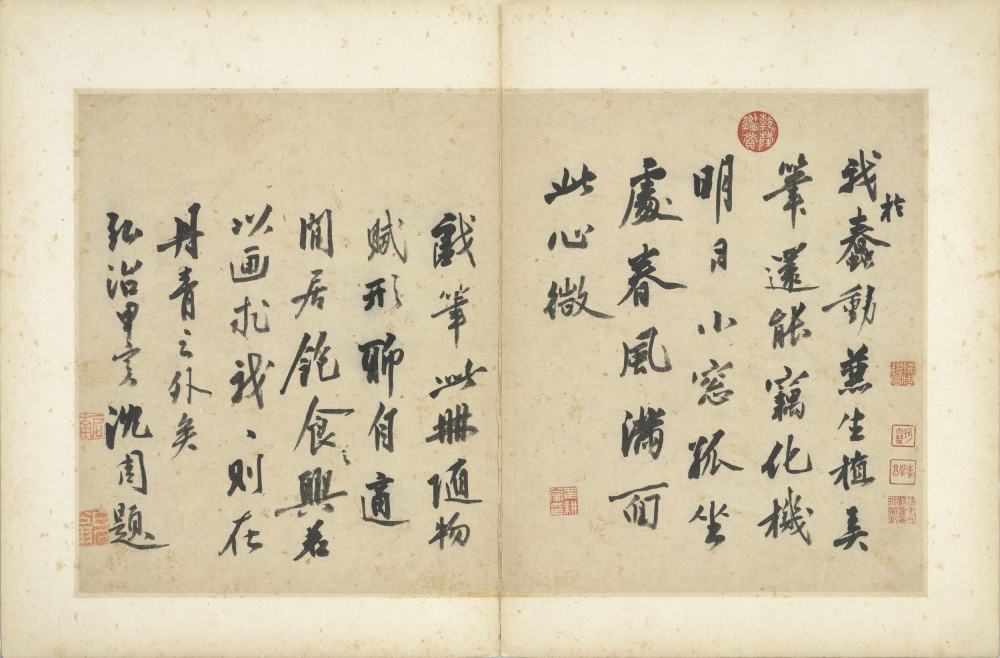 我於蠢動兼生植弄
筆還能竊化機
明月小窓孤坐
處春風滿面
此心微
戲筆此冊隨物
賦形聊自適
閒居飽食之興若
以画求我〻則在
丹青之外矣
弘治甲寅沈周題
乾隆鑑賞